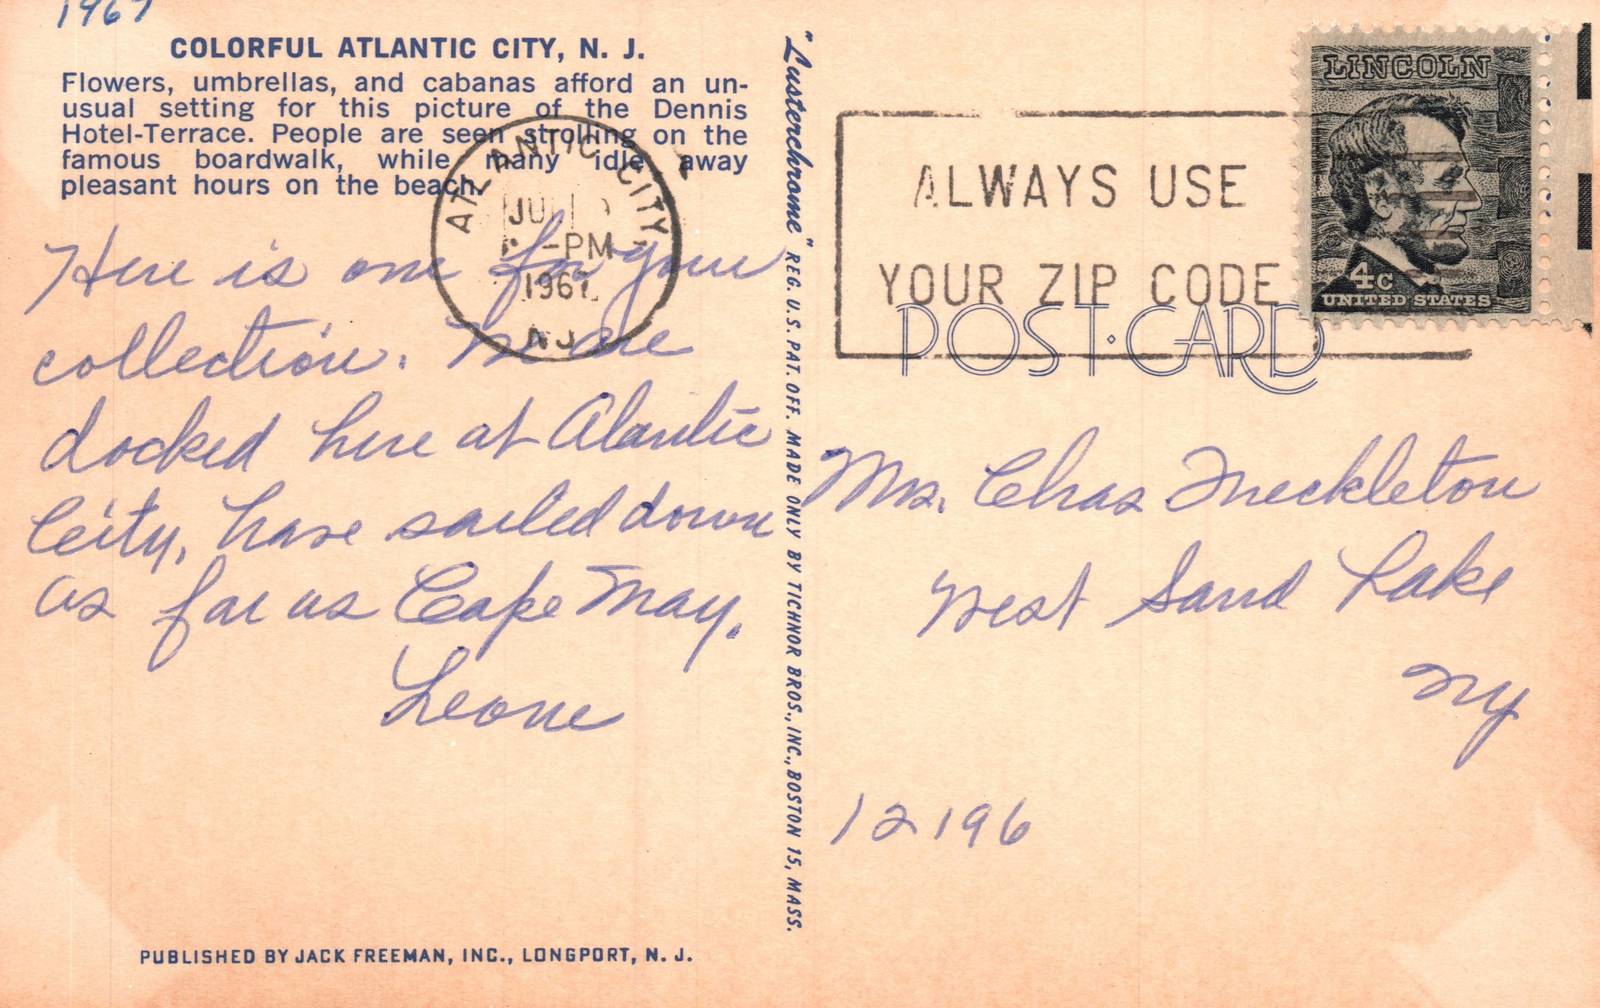 1967
COLORFUL ATLANTIC CITY, N. J.
Flowers, umbrellas, and cabanas afford an un-
usual setting for this picture of the Dennis
Hotel-Terrace. People are seen strolling on the
famous boardwalk, while many idle away
pleasant hours on the beach.
Here is one for your
collection. We are
docked here at Alantic
City, have sailed down
as far as Cape May.
Leone
PUBLISHED BY JACK FREEMAN, INC., LONGPORT, N. J.
"Lusterchrome" REG. U.S. PAT. OFF. MADE ONLY BY TICHNOR BROS., INC., BOSTON 15, MASS.
ATLANTIC CITY,
PM
1967
N.J.
ALWAYS USE
YOUR ZIP CODE
LINCOLN
4c
UNITED STATES
POST·CARD
Mrs. Chas Meckleton
West Sand Lake
NY
12196